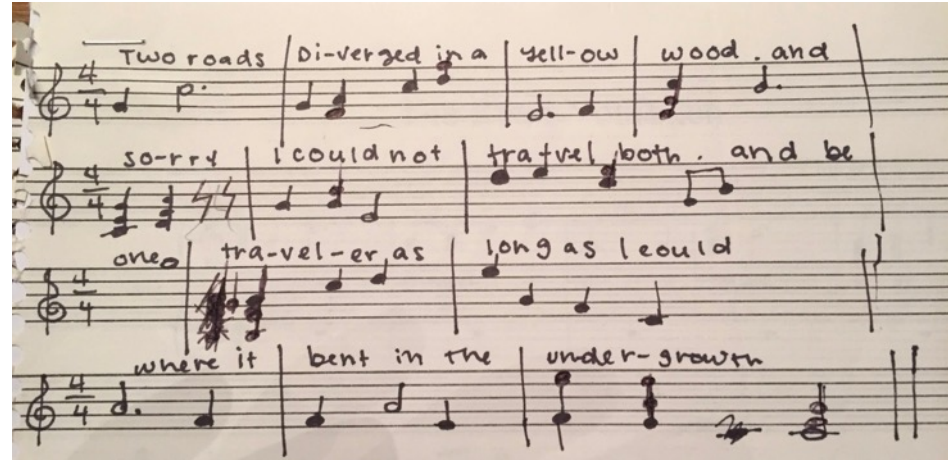 Two roads Di-verged in a yell-ow wood. and
4 4
so-rry I could not tra-vel both. and be
4 4
one tra-vel-er, as long as I could
4 4
where it bent in the under-growth
4 4